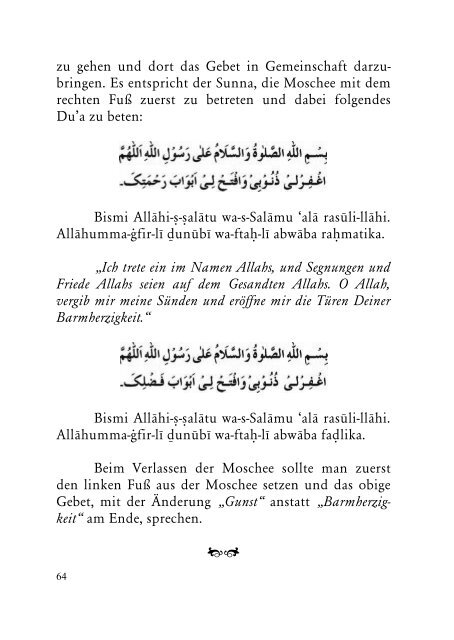 zu gehen und dort das Gebet in Gemeinschaft darzu-
bringen. Es entspricht der Sunna, die Moschee mit dem
rechten Fuß zuerst zu betreten und dabei folgendes
Du’a zu beten:
بِسْمِ اللّٰهِ الصَّلٰوةُ وَالسَّلَامُ عَلٰی رَسُوْلِ اللّٰهِ اَللّٰهُمَّ
اغْفِرْلِیْ ذُنُوْبِیْ وَافْتَحْ لِیْ اَبْوَابَ رَحْمَتِکَ۔
Bismi Allāhi-ṣ-ṣalātu wa-s-Salāmu ‘alā rasūli-llāhi.
Allāhumma-ġfir-lī ḏunūbī wa-ftaḥ-lī abwāba raḥmatika.
„Ich trete ein im Namen Allahs, und Segnungen und
Friede Allahs seien auf dem Gesandten Allahs. O Allah,
vergib mir meine Sünden und eröffne mir die Türen Deiner
Barmherzigkeit.“
بِسْمِ اللّٰهِ الصَّلٰوةُ وَالسَّلَامُ عَلٰی رَسُوْلِ اللّٰهِ اَللّٰهُمَّ
اغْفِرْلِیْ ذُنُوْبِیْ وَافْتَحْ لِیْ اَبْوَابَ فَضْلِکَ۔
Bismi Allāhi-ṣ-ṣalātu wa-s-Salāmu ‘alā rasūli-llāhi.
Allāhumma-ġfir-lī ḏunūbī wa-ftaḥ-lī abwāba faḍlika.
Beim Verlassen der Moschee sollte man zuerst
den linken Fuß aus der Moschee setzen und das obige
Gebet, mit der Änderung „Gunst“ anstatt „Barmherzig-
keit“ am Ende, sprechen.
64